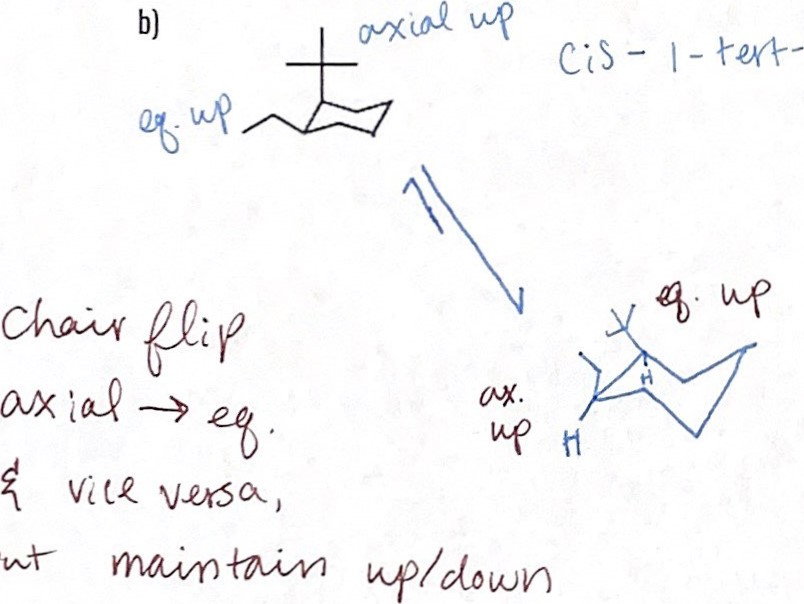 b)
axial up
cis - 1 - tert -
eq. up
eq. up
ax.
up
H
H
Chair flip
axial → eq.
& vice versa,
ut maintain up/down